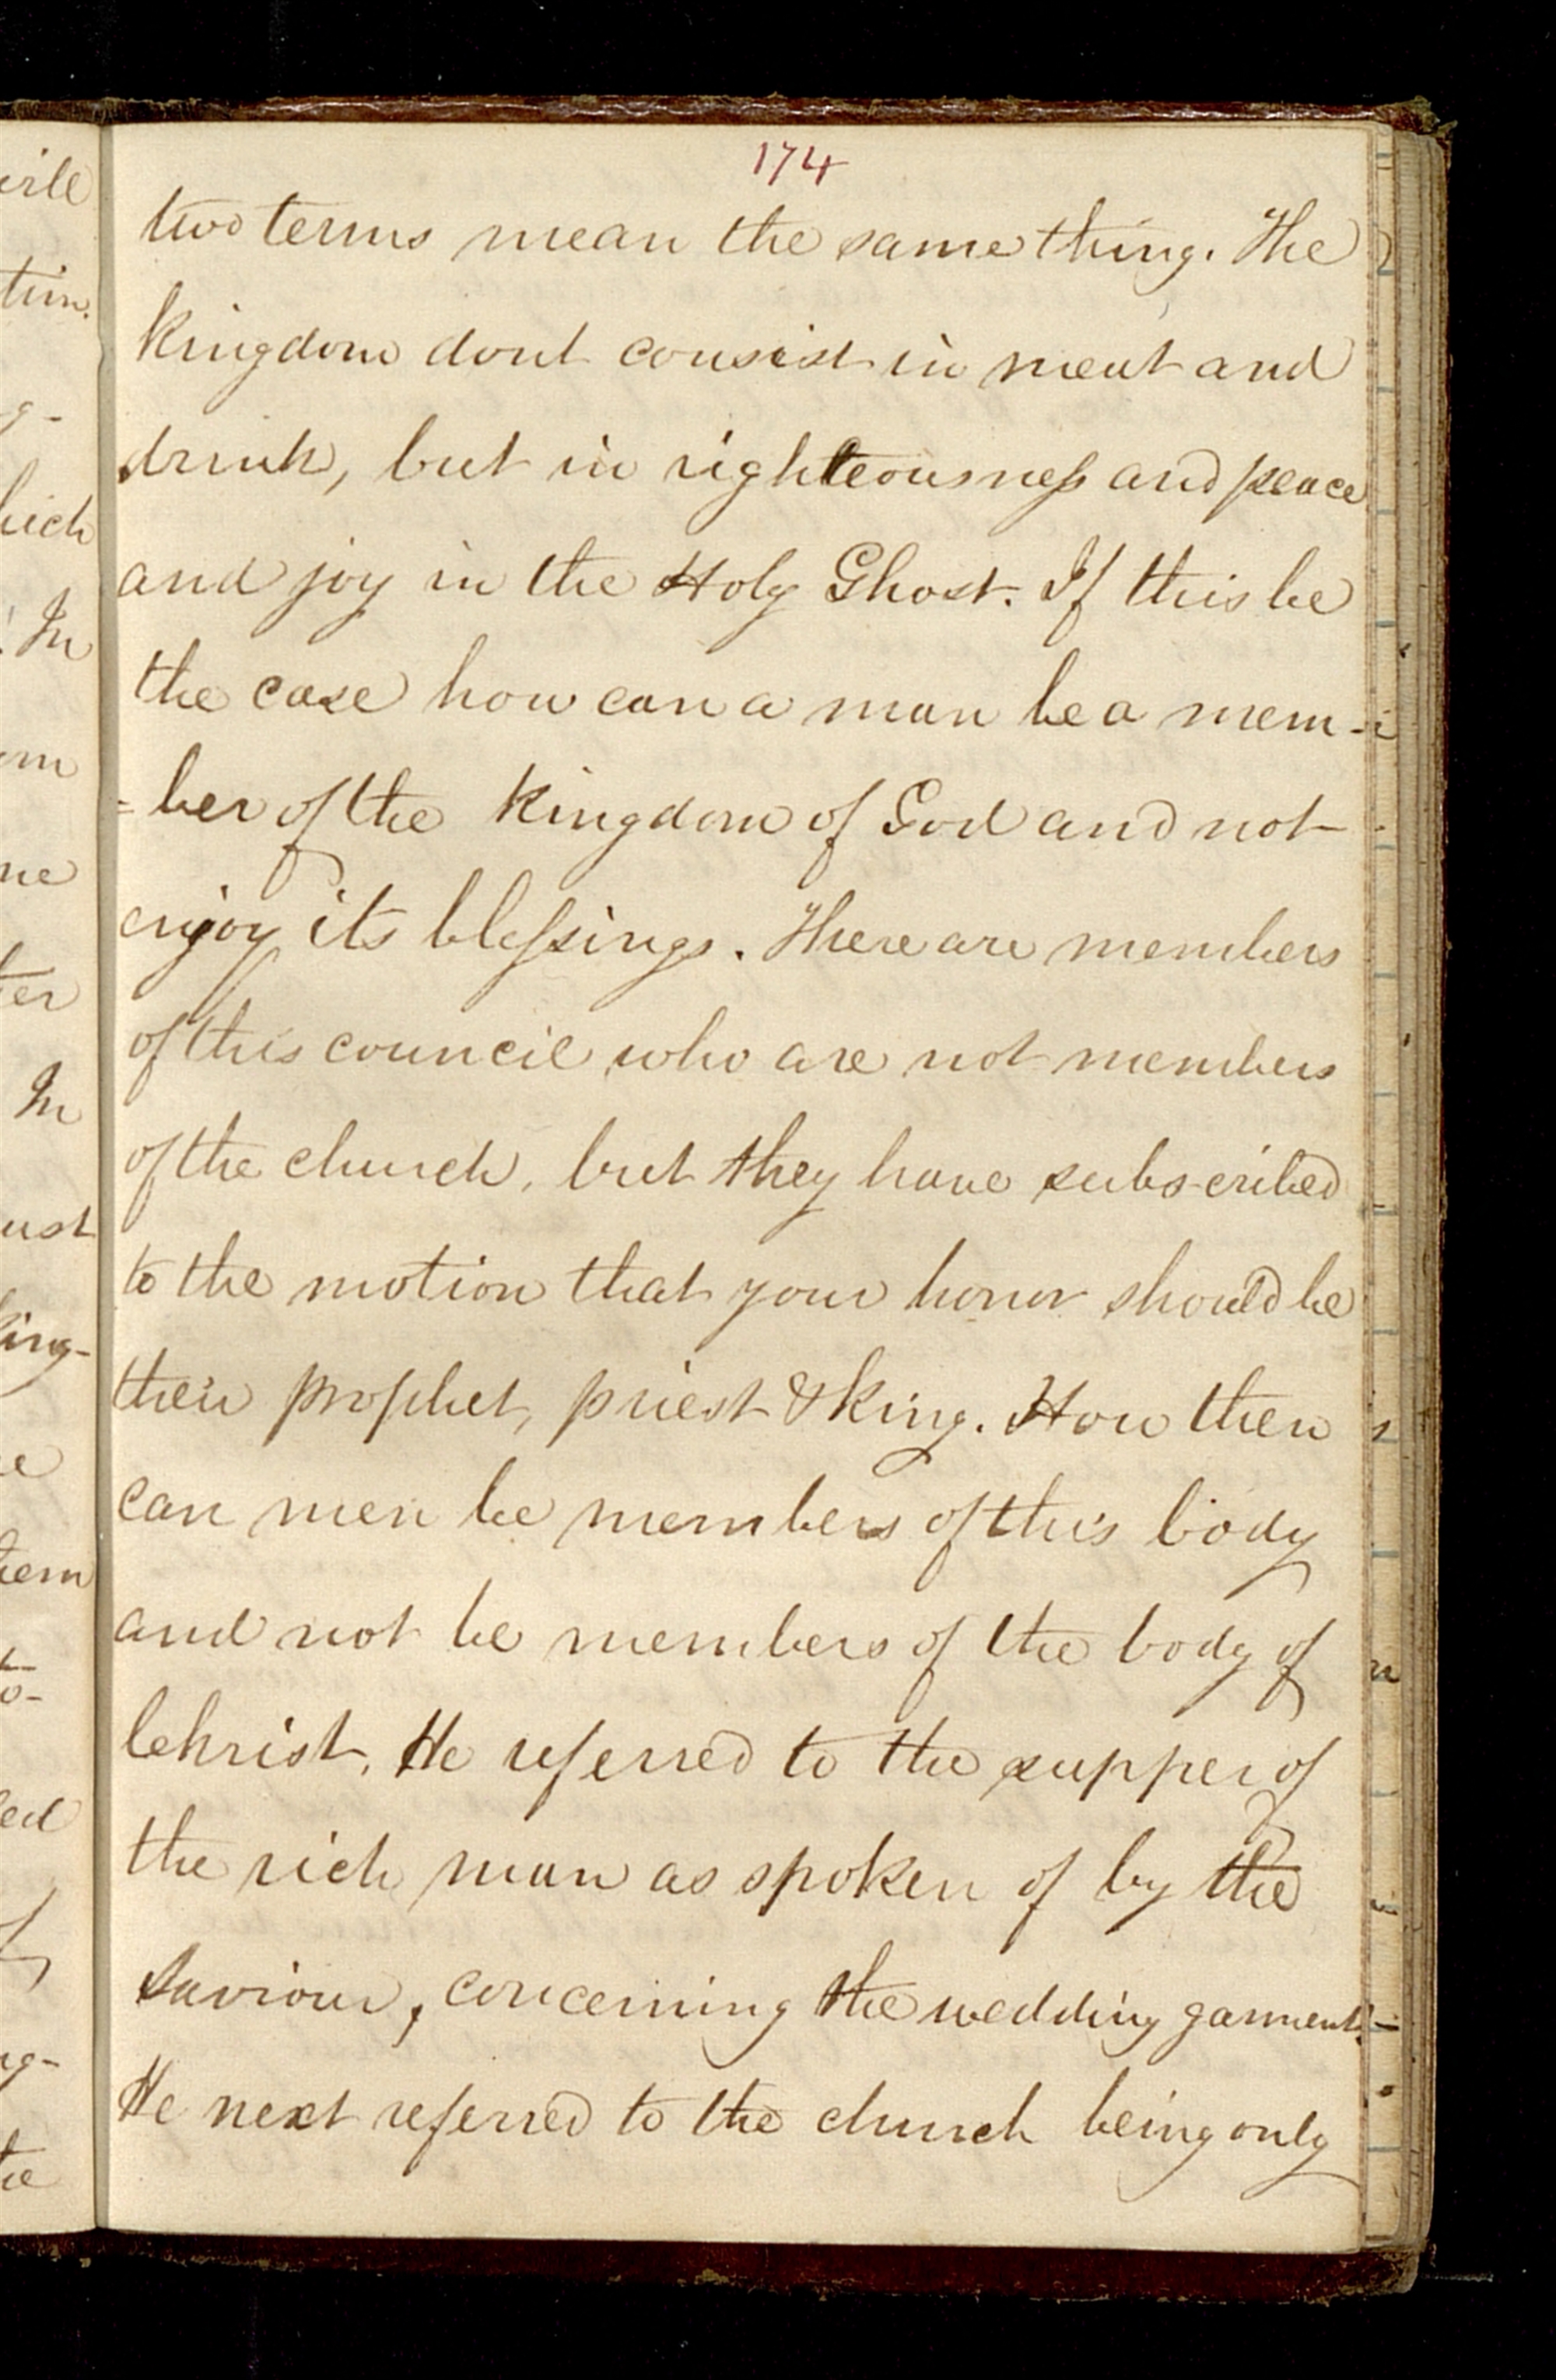 174
two terms mean the same thing. The
kingdom dont consist in meat and
drink, but in righteousness and peace
and joy in the Holy Ghost. If this be
the case how can a man be a mem-
=ber of the kingdom of God and not
enjoy its blessings. There are members
of this council who are not members
of the church, but they have subscribed
to the motion that your honor should be
their prophet, priest & king. How then
can men be members of this body
and not be members of the body of
Christ. He referred to the supper of
the rich man as spoken of by the
Saviour, concerning the wedding garment.
He next referred to the church being only